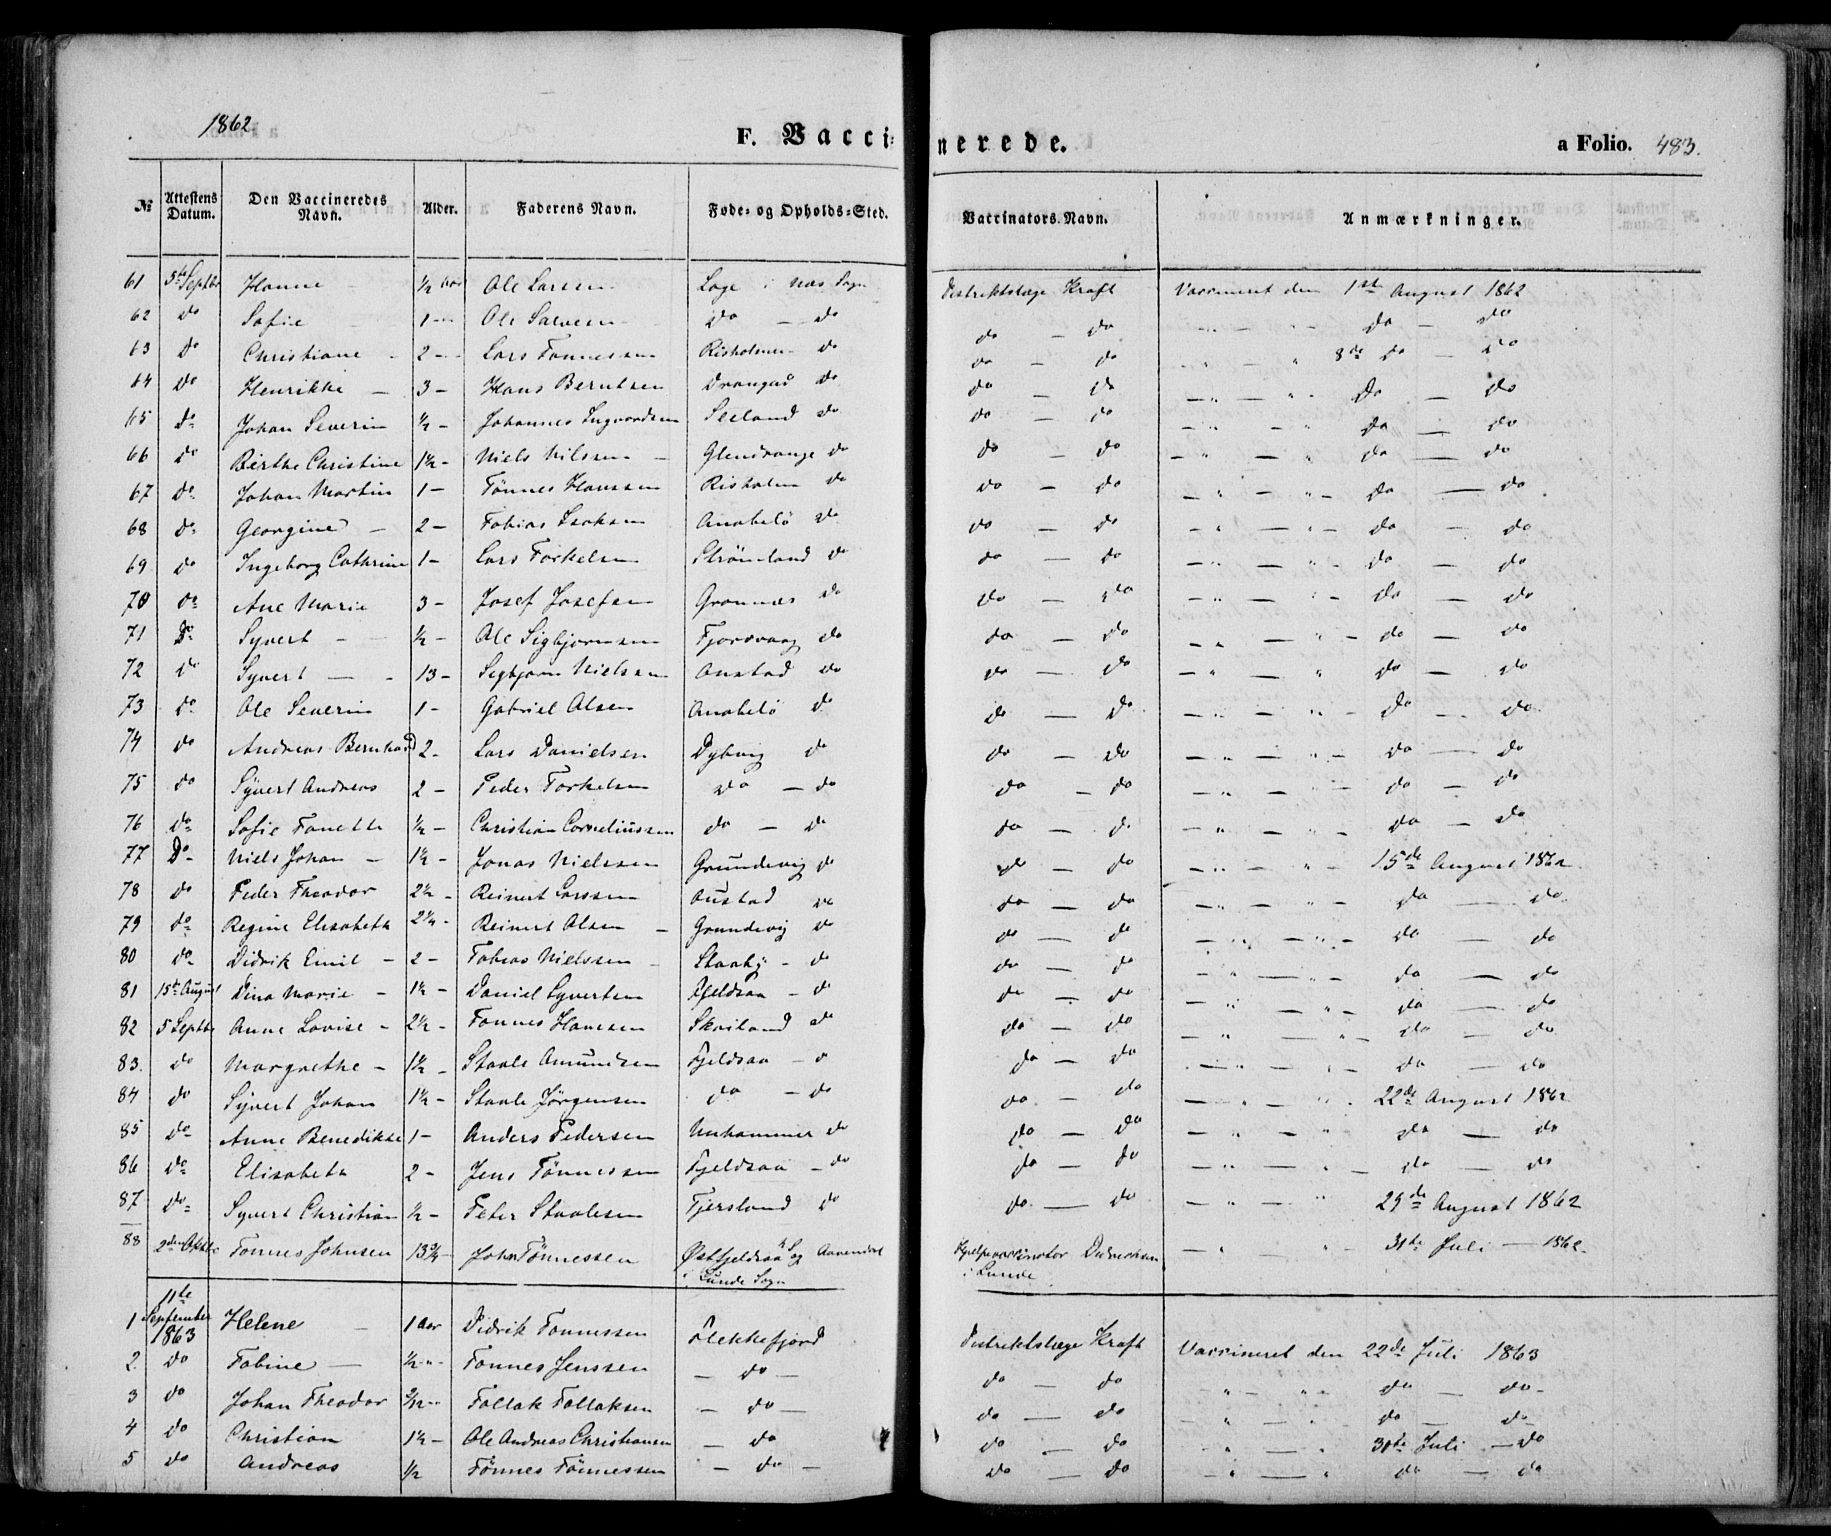 1862
F. Vaccinerede. a Folio. 483.
№ Attestens Datum. Den Vaccineredes Navn. Alder. Faderens Navn. Føde- og Opholds-Sted. Vaccinators Navn. Anmærkninger.
61 5te Septbr Hanne ½ aar Ole Larsen Loge i Næs Sogn Distriktslæge Kraft Vaccineret den 1ste August 1862
62 do Sofie 1 - Ole Salvesen do - do do - do do - do
63 do Christiane - 2 - Lars Tønnessen Risholmen do do - do 8de do - do
64 do Henrikke - 3 - Hans Berntsen Drangeid do do - do do - do
65 do Johan Severin ½ - Johannes Ingvardsen Seeland do do - do do - do
66 do Birthe Christine 1½ - Niels Nilssen - Glendrange do do - do do - do
67 do Johan Martin 1 - Tønnes Hanssen Risholm do do - do do - do
68 do Georgine - 2 - Tobias Isaksen Anabelø do do - do do - do
69 do Ingeborg Cathrine 1 - Lars Torkelsen Strømland do do - do do - do
70 do Ane Marie 3 - Josef Josefsen Grønnes do do - do do - do
71 do Syvert - ½ - Ole Sigbjørnsen Fjordvaag do do - do do - do
72 do Syvert - 13 - Sigbjørn Nielssen Anstad do do - do do - do
73 do Ole Severin 1 - Gabriel Olsen Anabelø do do - do do - do
74 do Andreas Bernhard 2 - Lars Danielsen Dybvig do do - do do - do
75 do Syvert Andreas 2 - Peder Torkelsen do - do do - do do - do
76 do Sofie Tonette ½ - Christian Corneliussen do - do do - do do - do
77 do Niels Johan - 1½ - Jonas Nielssen Grundevig do do - do 15de August 1862
78 do Peder Theodor 2½ - Reinert Larssen Oustad do do - do do - do
79 do Regine Elisabeth 2¼ - Reinert Olsen - Grundevig do do - do do - do
80 do Didrik Emil - 2 - Tobias Nielssen - do do - do do - do
81 15de August Dina Marie - 1½ - Daniel Syvertsen Fjeldsaa - do do - do do - do
82 5 Septbr Anne Lovise - 2½ - Tønnes Hanssen Skoiland do do - do do - do
83. do Margrethe - 1½ - Staale Amundsen Fjeldsaa - do do - do do - do
84 do Syvert Johan 1½ - Staale Jørgensen do - do do - do 22de August 1862
85 do Anne Benedikte 1 - Anders Pedersen Unhammer do do - do do - do
86 do Elisabeth 2 - Jens Tønnessen Fjeldsaa - do do - do do - do
87 do Syvert Christian ½ - Peter Staalesen Tjersland do do - do 29de August 1862
88 2den Oktbr Tønnes Johnsen 13¾ - John Tønnessen Østfjeldsaa og Aavendal Hjelpevaccinator 31te Juli - 1862
i Lunde Sogn i Lunde
1 11te September 1863 Helene - 1 Aar Didrik Tønnessen Flekkefjord Distriktslæge Kraft Vaccineret den 22de Juli 1863
2 do Tobine - ½ - Tønnes Jenssen - do - do - do do - do
3 do Johan Theodor Tollak Tollaksen - do - do - do do - do
4 do Christian 1½ - Ole Andreas Christiansen - do do - do 30te Juli - do
5 do Andreas ½ Tønnes Tønnessen - do - do - do do - do